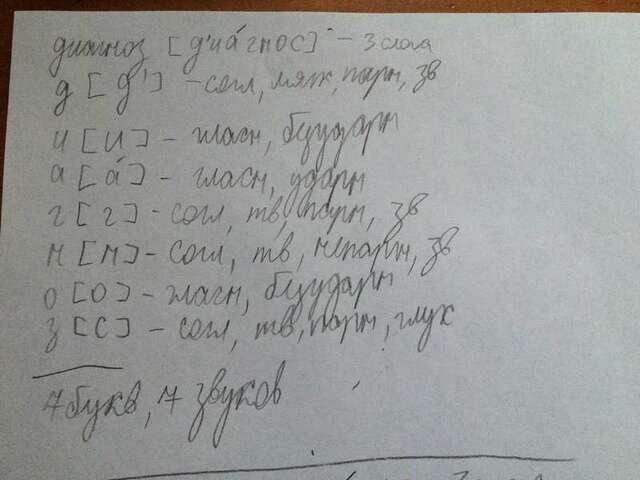 диагноз [д'иа́гнос] - 3 слога
д [д'] - согл, мяк, парн, зв
и [и] - гласн, безударн
а [а́] - гласн, ударн
г [г] - согл, тв, парн, зв
н [н] - согл, тв, непарн, зв
о [о] - гласн, безударн
з [с] - согл, тв, парн, глух
7 букв, 7 звуков